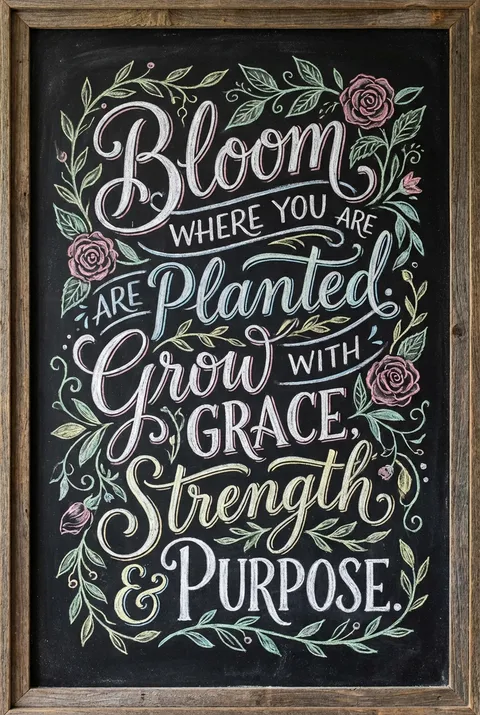 Bloom
WHERE YOU ARE
ARE Planted.
Grow WITH
GRACE,
Strength
& PURPOSE.